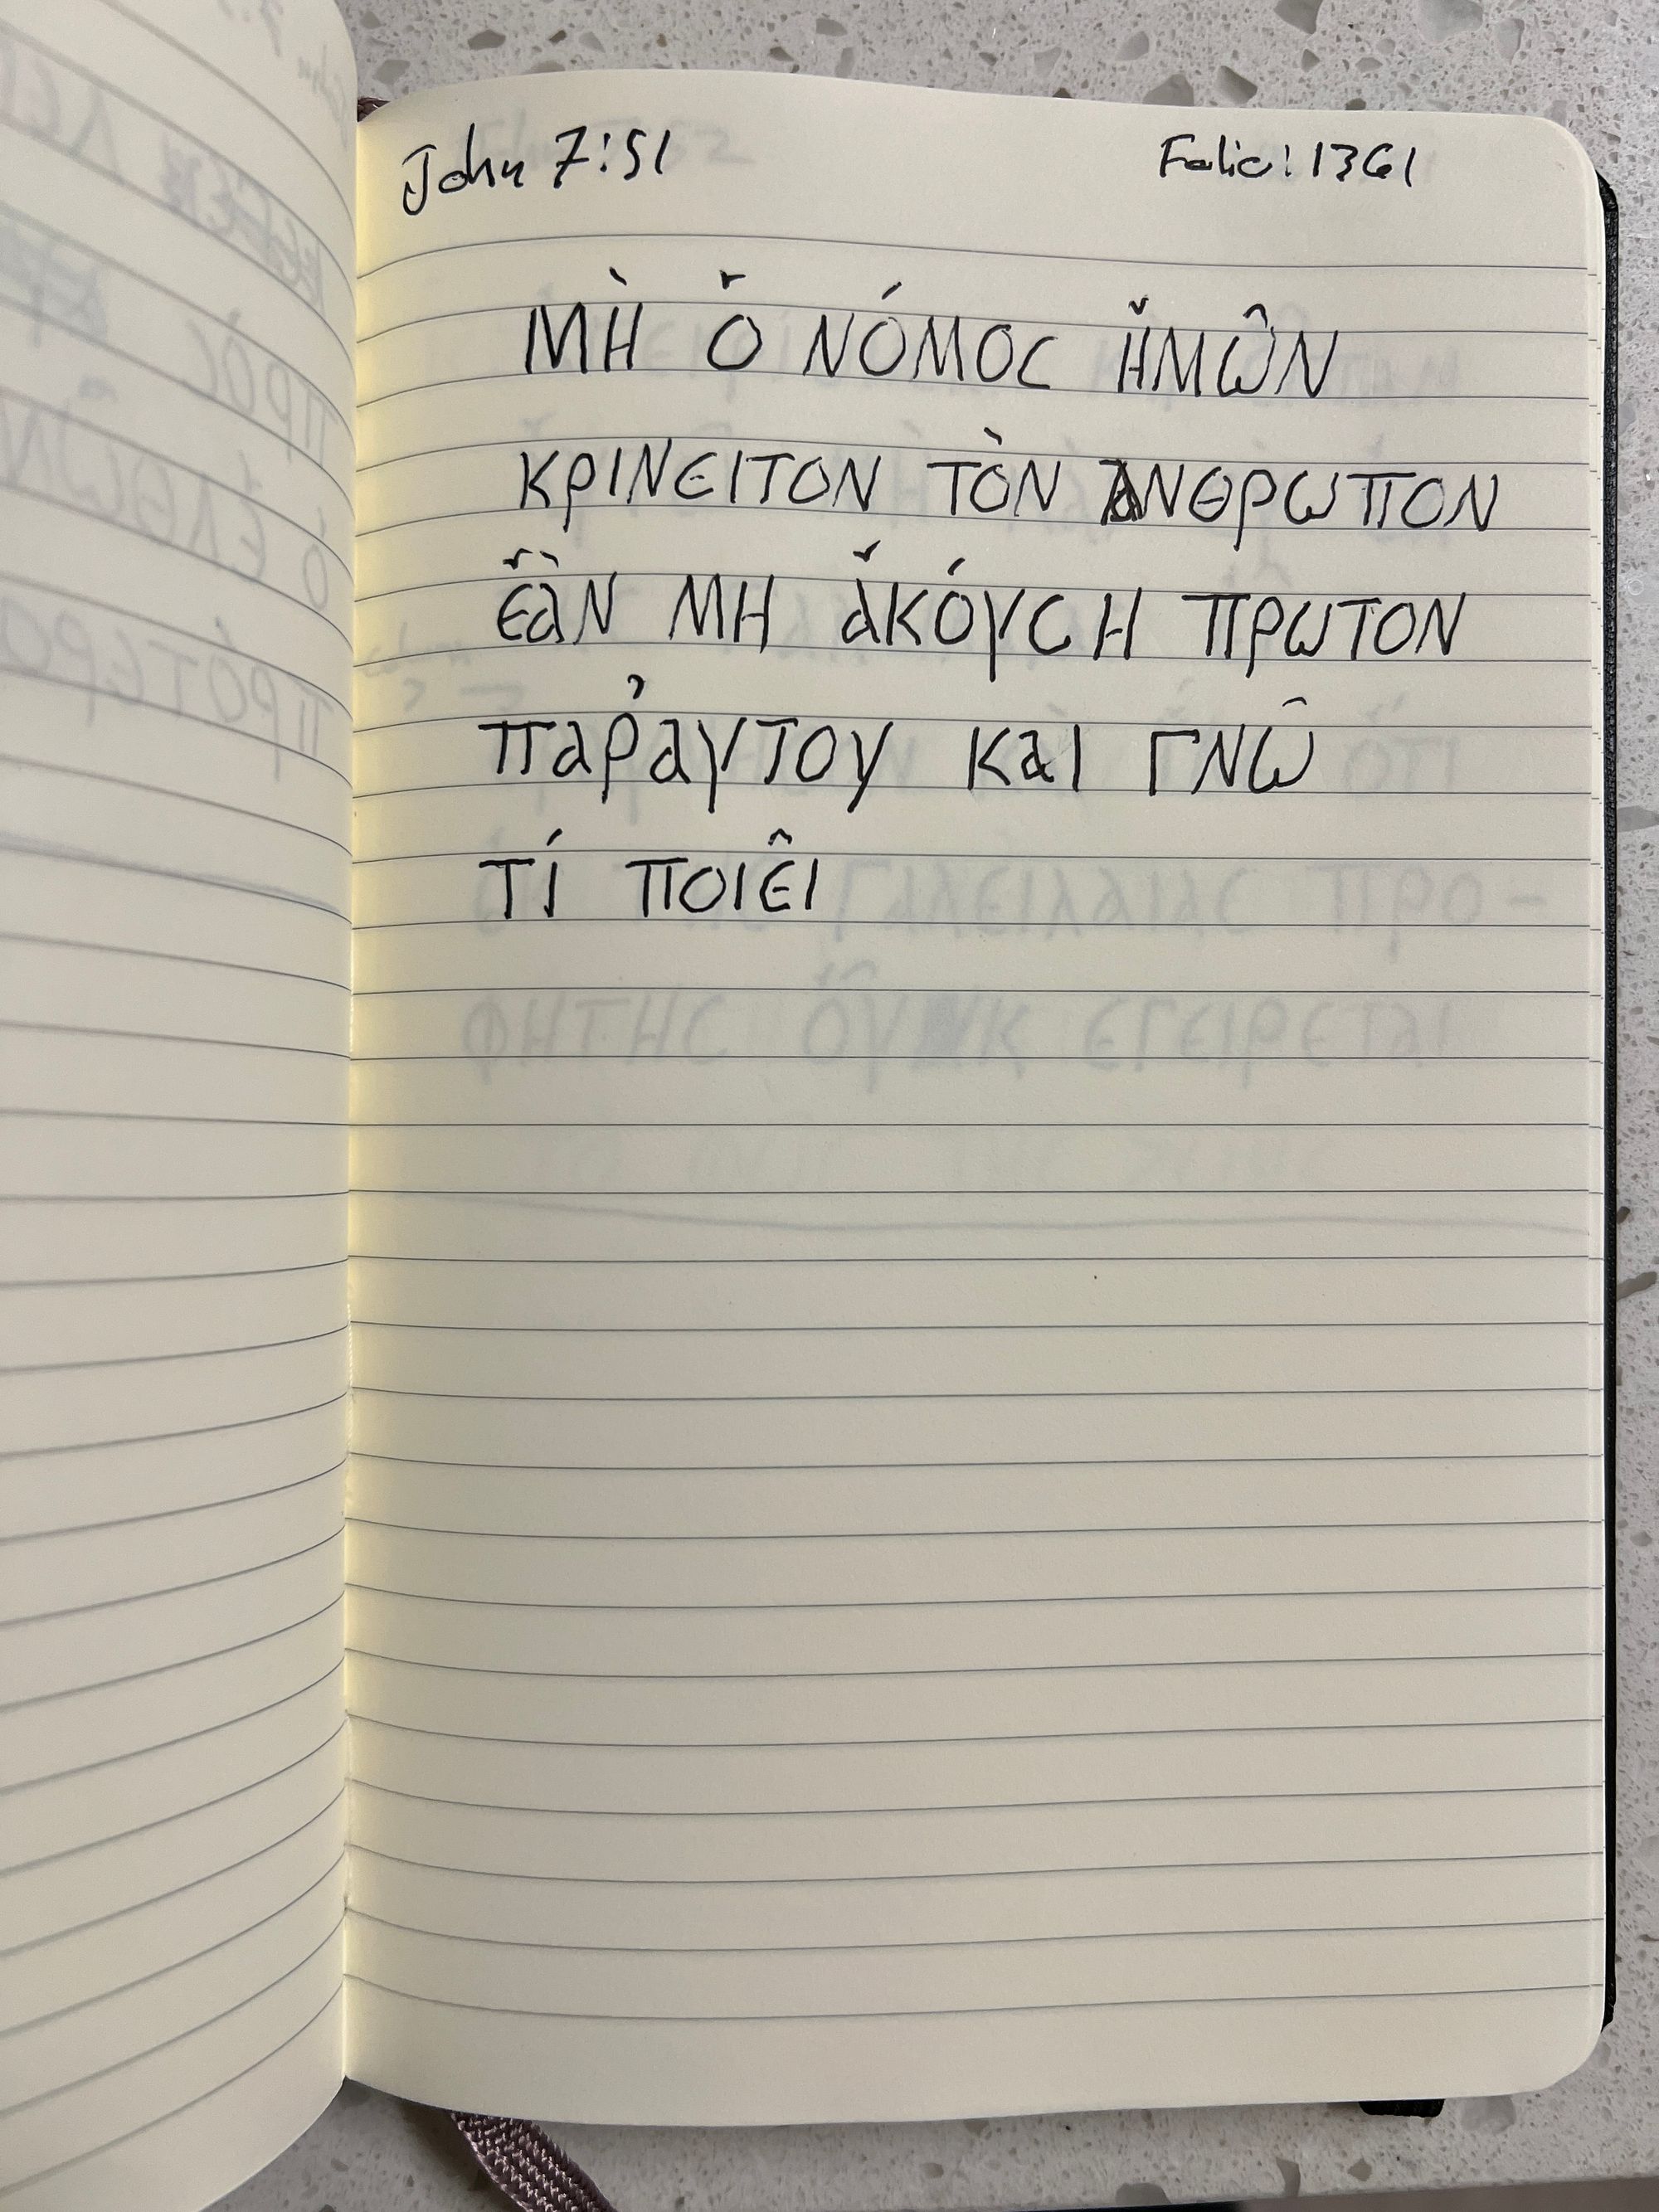 John 7:51 Folio: 1361
ΜῊ Ὁ ΝΌΜΟC ἩΜΩ͂Ν
ΚΡΙΝΕΙΤΟΝ ΤῸΝ ΑΝΘΡΩΠΟΝ
ἘᾺΝ ΜΗ ἈΚΌΥCΗ ΠΡΩΤΟΝ
ΠΑΡ᾽ΑΥΤΟΥ ΚΑΙ ΓΝΩ͂
ΤΊ ΠΟΙΕ͂Ι